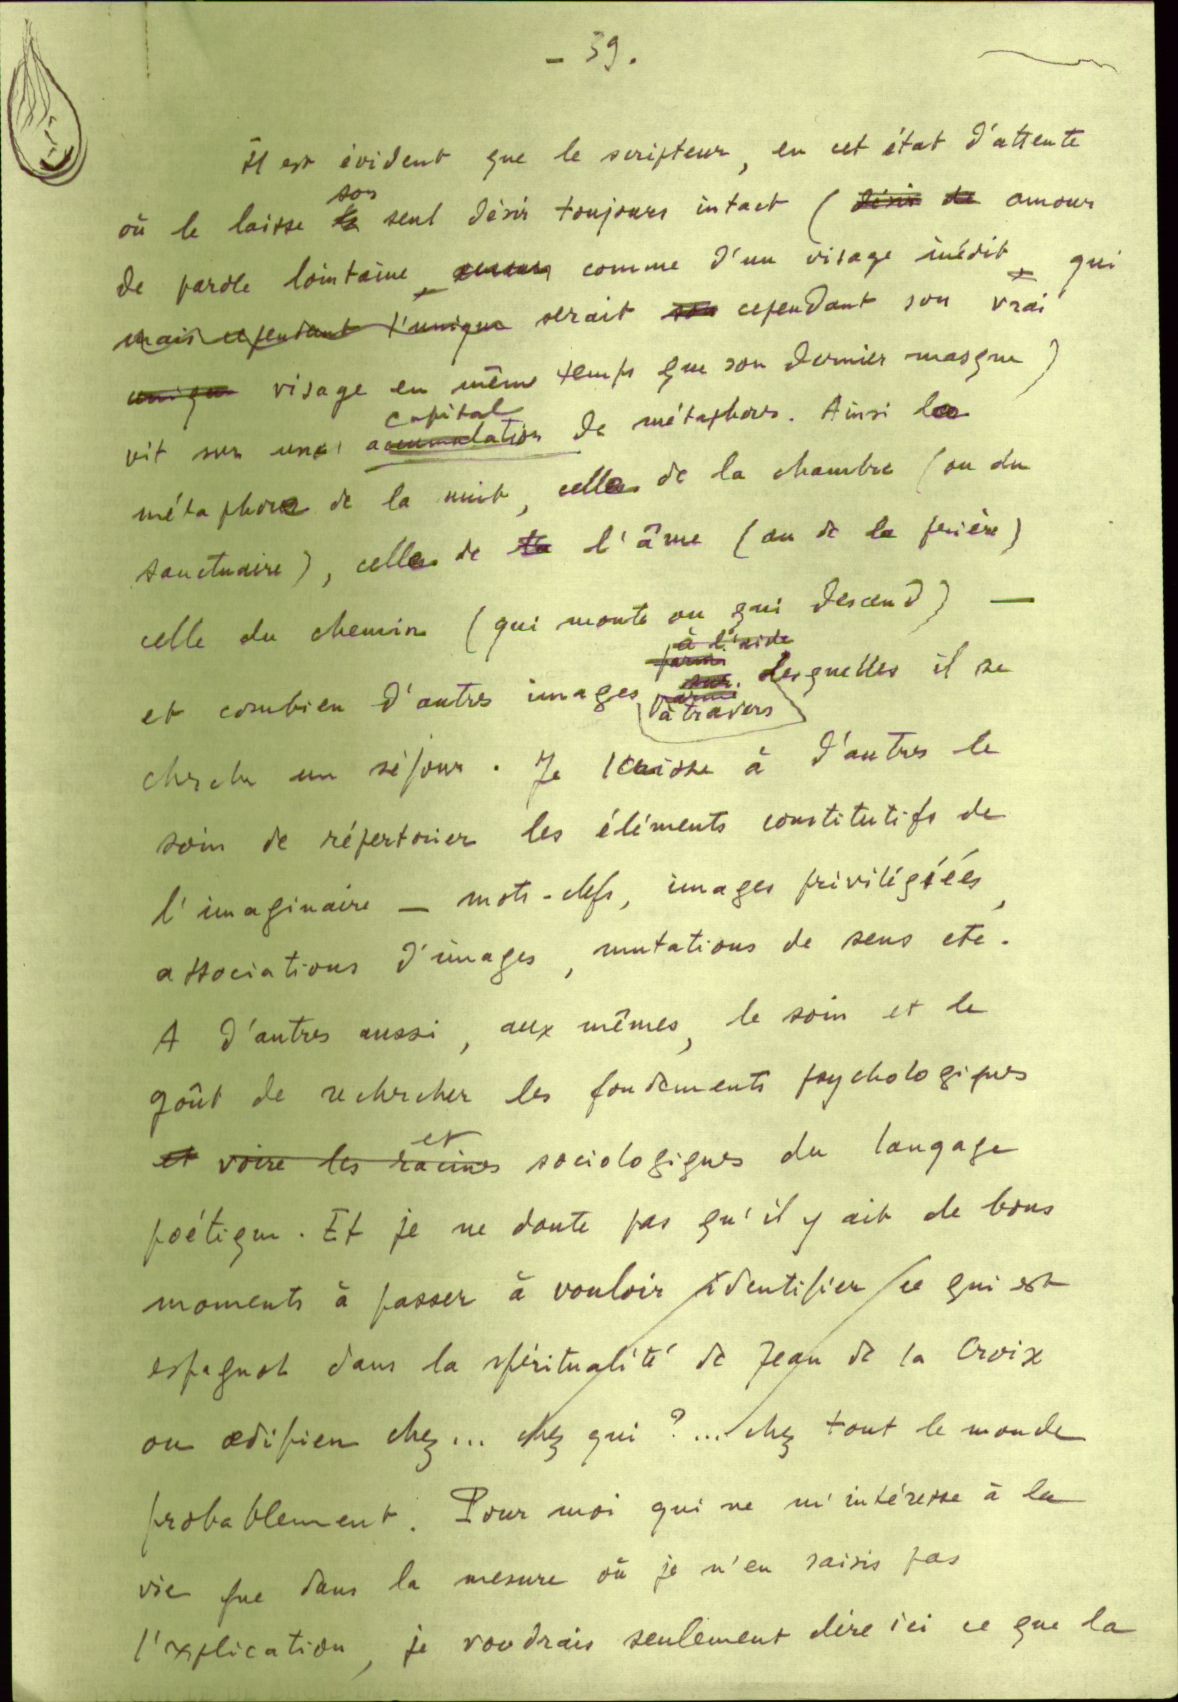 - 39.
Il est évident que le scripteur, en cet état d'attente
son
où le laisse le seul désir toujours intact (désir de amour
de parole lointaine, comme d'un visage inédit, qui
mais cependant l'unique serait son cependant son vrai
unique visage en même temps que son dernier masque)
capital
vit sur une accumulation de métaphores. Ainsi la
métaphore de la nuit, celle de la chambre (ou du
sanctuaire), celle de la l'âme (ou de la prière)
celle du chemin (qui monte ou qui descend) —
à l'aide
parmi
et combien d'autres images sur desquelles il se
parmi
à travers
cherche un séjour. Je laisse à d'autres le
soin de répertorier les éléments constitutifs de
l'imaginaire — mots-clefs, images privilégiées,
associations d'images, mutations de sens etc.
A d'autres aussi, aux mêmes, le soin et le
goût de rechercher les fondements psychologiques
et
et voire les racines sociologiques du langage
poétique. Et je ne doute pas qu'il y ait de bons
moments à passer à vouloir identifier ce qui est
espagnol dans la spiritualité de Jean de la Croix
ou œdipien chez... chez qui ?... chez tout le monde
probablement. Pour moi qui ne m'intéresse à la
vie que dans la mesure où je n'en saisis pas
l'explication, je voudrais seulement dire ici ce que la